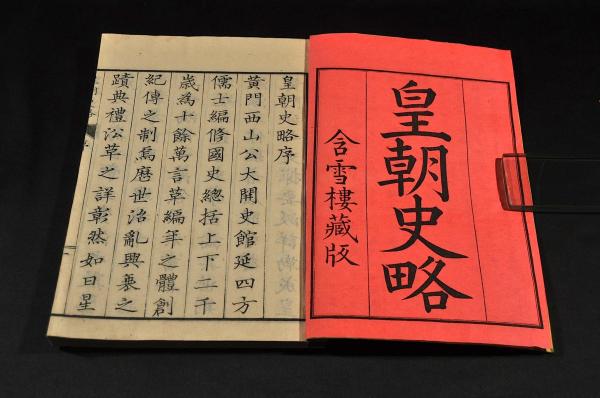 皇朝史略
含雪樓藏版
皇朝史略序
黃門西山公大開史館延四方
儒士編修國史總括上下二千
歲為十餘萬言革編年之體創
紀傳之制焉歷世治亂興衰之
蹟典禮沿革之詳彰然如日星